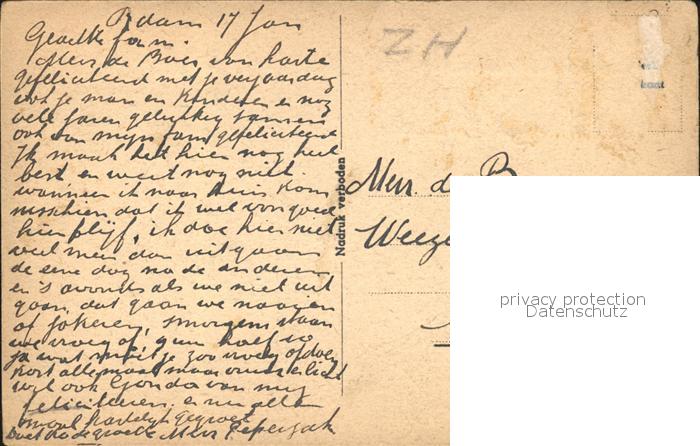 R.dam 17 Jan
Geachte fam.
Mevr de Boer van harte
gefeliciteerd met je verjaardag
ook je man en kinderen en nog
vele jaren gelukkig samen
ook van mijn fam gefeliciteerd
Ik maak het hier nog heel
best en weet nog niet
wanneer ik naar huis kom
misschien dat ik wel voor goed
hier blijf, ik doe hier niet
veel meer dan uitgaan
de eene dag na de anderen
en 's avonds als we niet uit
gaan, dat gaan we naaien
of jokeren, smorgens staan
we vroeg op, 9 uur half 10
ja wat moet je zoo vroeg op doen
kost allemaal maar vuur en licht
wil ook Gonda van mij
feliciteren. en nu allemaal
hartelijk gegroet
de groete Mevr Peperzak
Nadruk verboden
ZH
Mevr. d. B
Weeze
privacy protection
Datenschutz